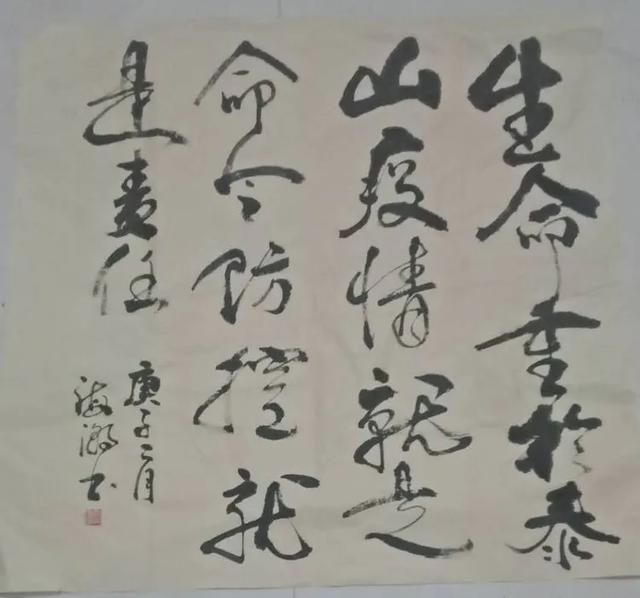 生命重於泰
山疫情就是
命令防控就
是责任
庚子二月
海潮书